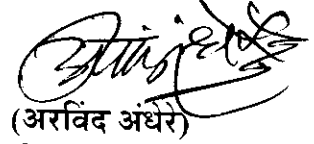 (अरविंद अंधेरे)